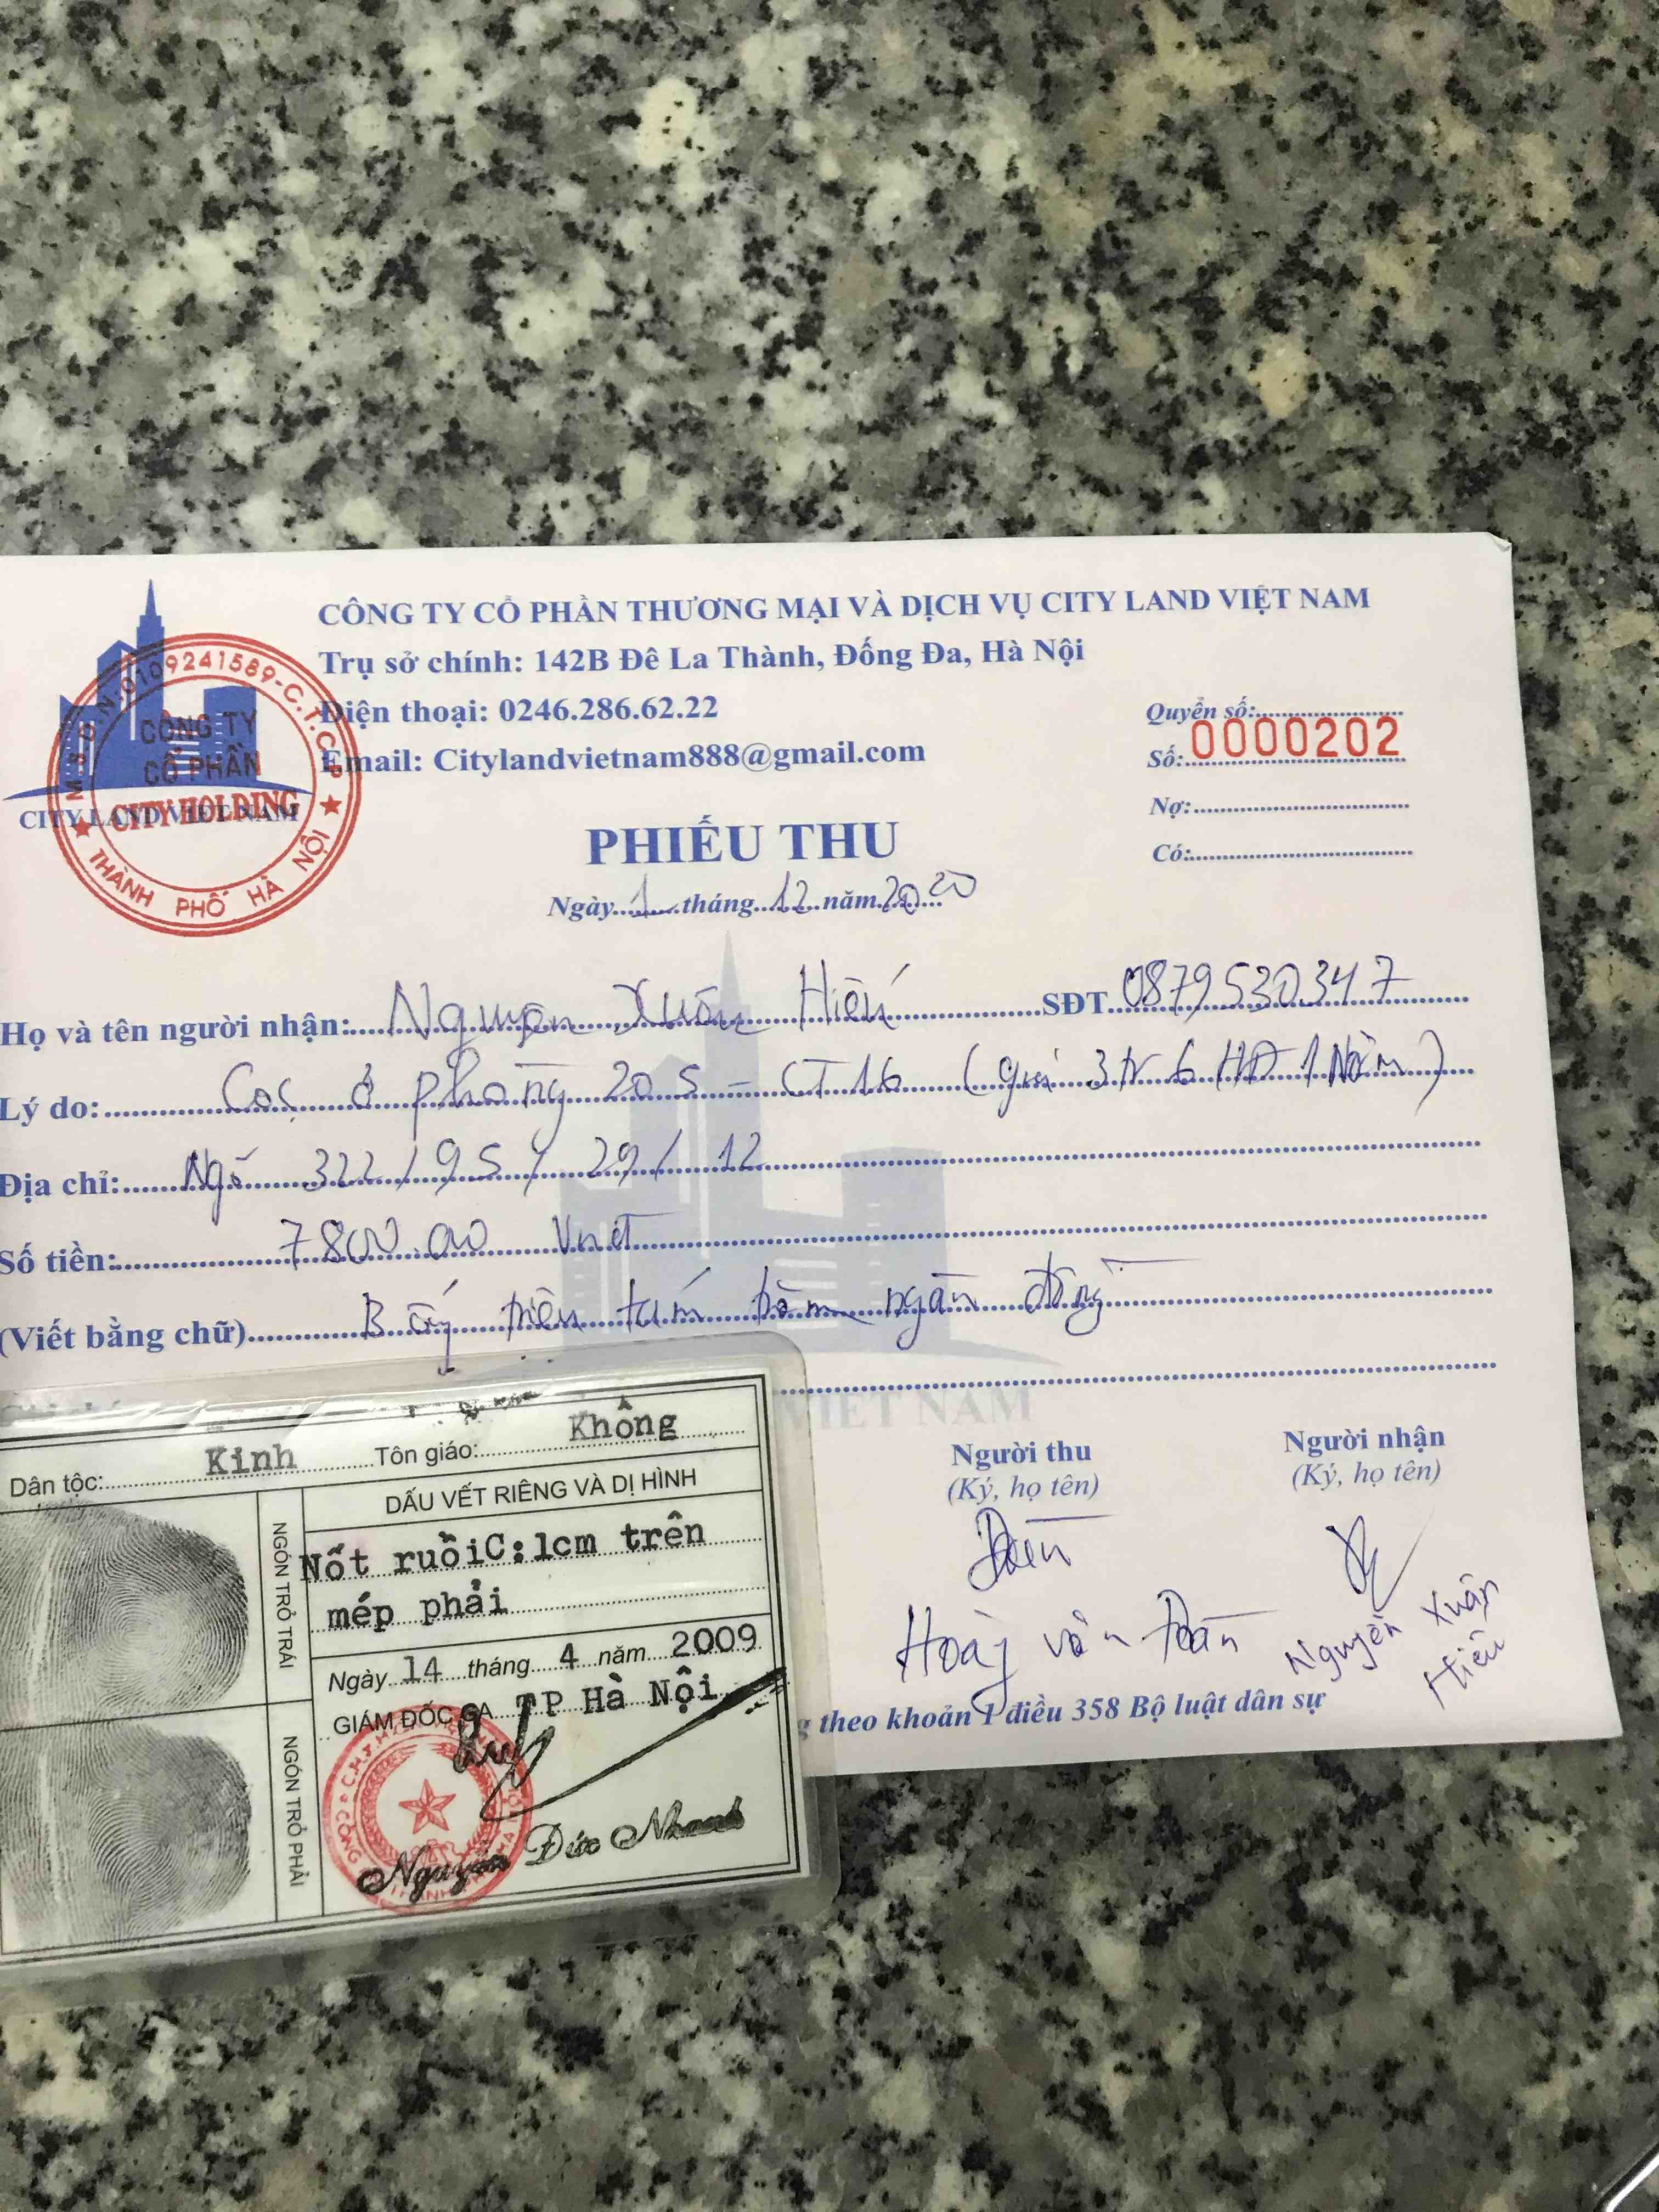 CÔNG TY CỔ PHẦN THƯƠNG MẠI VÀ DỊCH VỤ CITY LAND VIỆT NAM
Trụ sở chính: 142B Đê La Thành, Đống Đa, Hà Nội
Điện thoại: 0246.286.62.22
Email: Citylandvietnam888@gmail.com
M.S.D.N:0109241589-C.T.C.P
CÔNG TY
CỔ PHẦN
CITY HOLDING
THÀNH PHỐ HÀ NỘI
CITY LAND VIET NAM
Quyển số:
Số: 0000202
Nợ:
Có:
PHIẾU THU
Ngày 1 tháng 12 năm 2020
Họ và tên người nhận: Nguyễn Xuân Hiếu SĐT 0879530347
Lý do: Cọc ở phòng 205 - CT16 (giá 3tr6 HĐ 1 Năm)
Địa chỉ: Ngõ 322/95/29/12
Số tiền: 7800.00 Vnđ
(Viết bằng chữ) Bảy triệu tám trăm ngàn đồng
VIET NAM
Người thu
(Ký, họ tên)
Hoàng văn Đoàn
Người nhận
(Ký, họ tên)
Nguyễn Xuân
Hiếu
theo khoản 1 điều 358 Bộ luật dân sự
Dân tộc: Kinh Tôn giáo: Không
DẤU VẾT RIÊNG VÀ DỊ HÌNH
Nốt ruồiC:1cm trên
mép phải
NGÓN TRỎ TRÁI
NGÓN TRỎ PHẢI
Ngày 14 tháng 4 năm 2009
GIÁM ĐỐC CA TP Hà Nội
Nguyễn Đức Nhanh